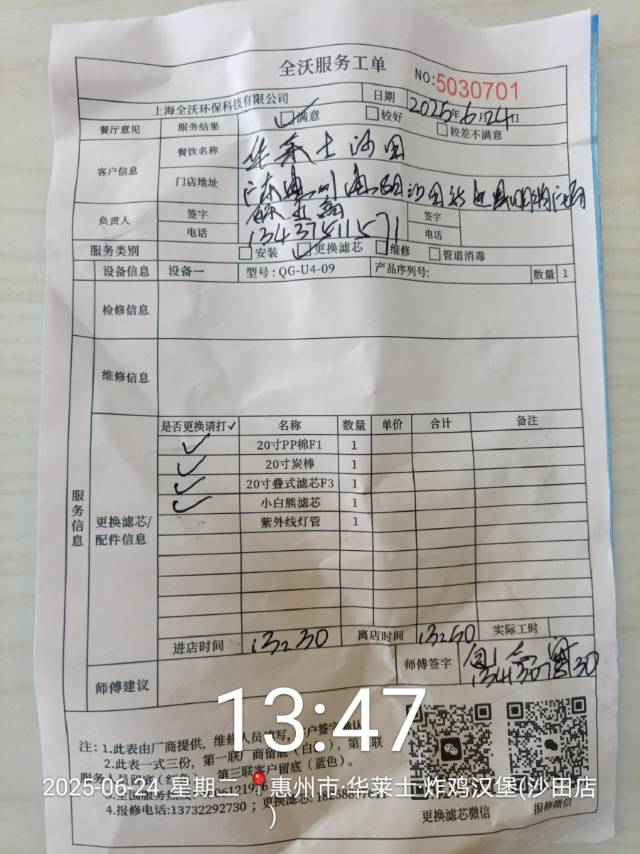 全沃服务工单
NO:5030701
上海全沃环保科技有限公司 日期 2025年6月24日
餐厅意见 服务结果 满意 较好 较差不满意
客户信息 餐饮名称 华莱士沙田
门店地址
负责人 签字 签字
电话 13437511571 电话
服务类别 安装 更换滤芯 维修 管道消毒
设备信息 设备一 型号:QG-U4-09 产品序列号: 数量 1
检修信息
维修信息
服务信息
更换滤芯/配件信息
是否更换请打✓ 名称 数量 单价 合计 备注
✓ 20寸PP棉F1 1
✓ 20寸炭棒 1
✓ 20寸叠式滤芯F3 1
✓ 小白熊滤芯 1
紫外线灯管 1
进店时间 13:30 离店时间 13:50 实际工时
师傅建议 师傅签字
13:47
注: 1.此表由厂商提供, 维修人员填写,
2.此表一式三份, 第一联厂商留底(白), 第二联
第三联客户留底(蓝色)。
2025-06-24 星期二 惠州市·华莱士·炸鸡汉堡(沙田店)
4.报修电话:13732292730 ; 更换滤芯:
更换滤芯微信 报修微信